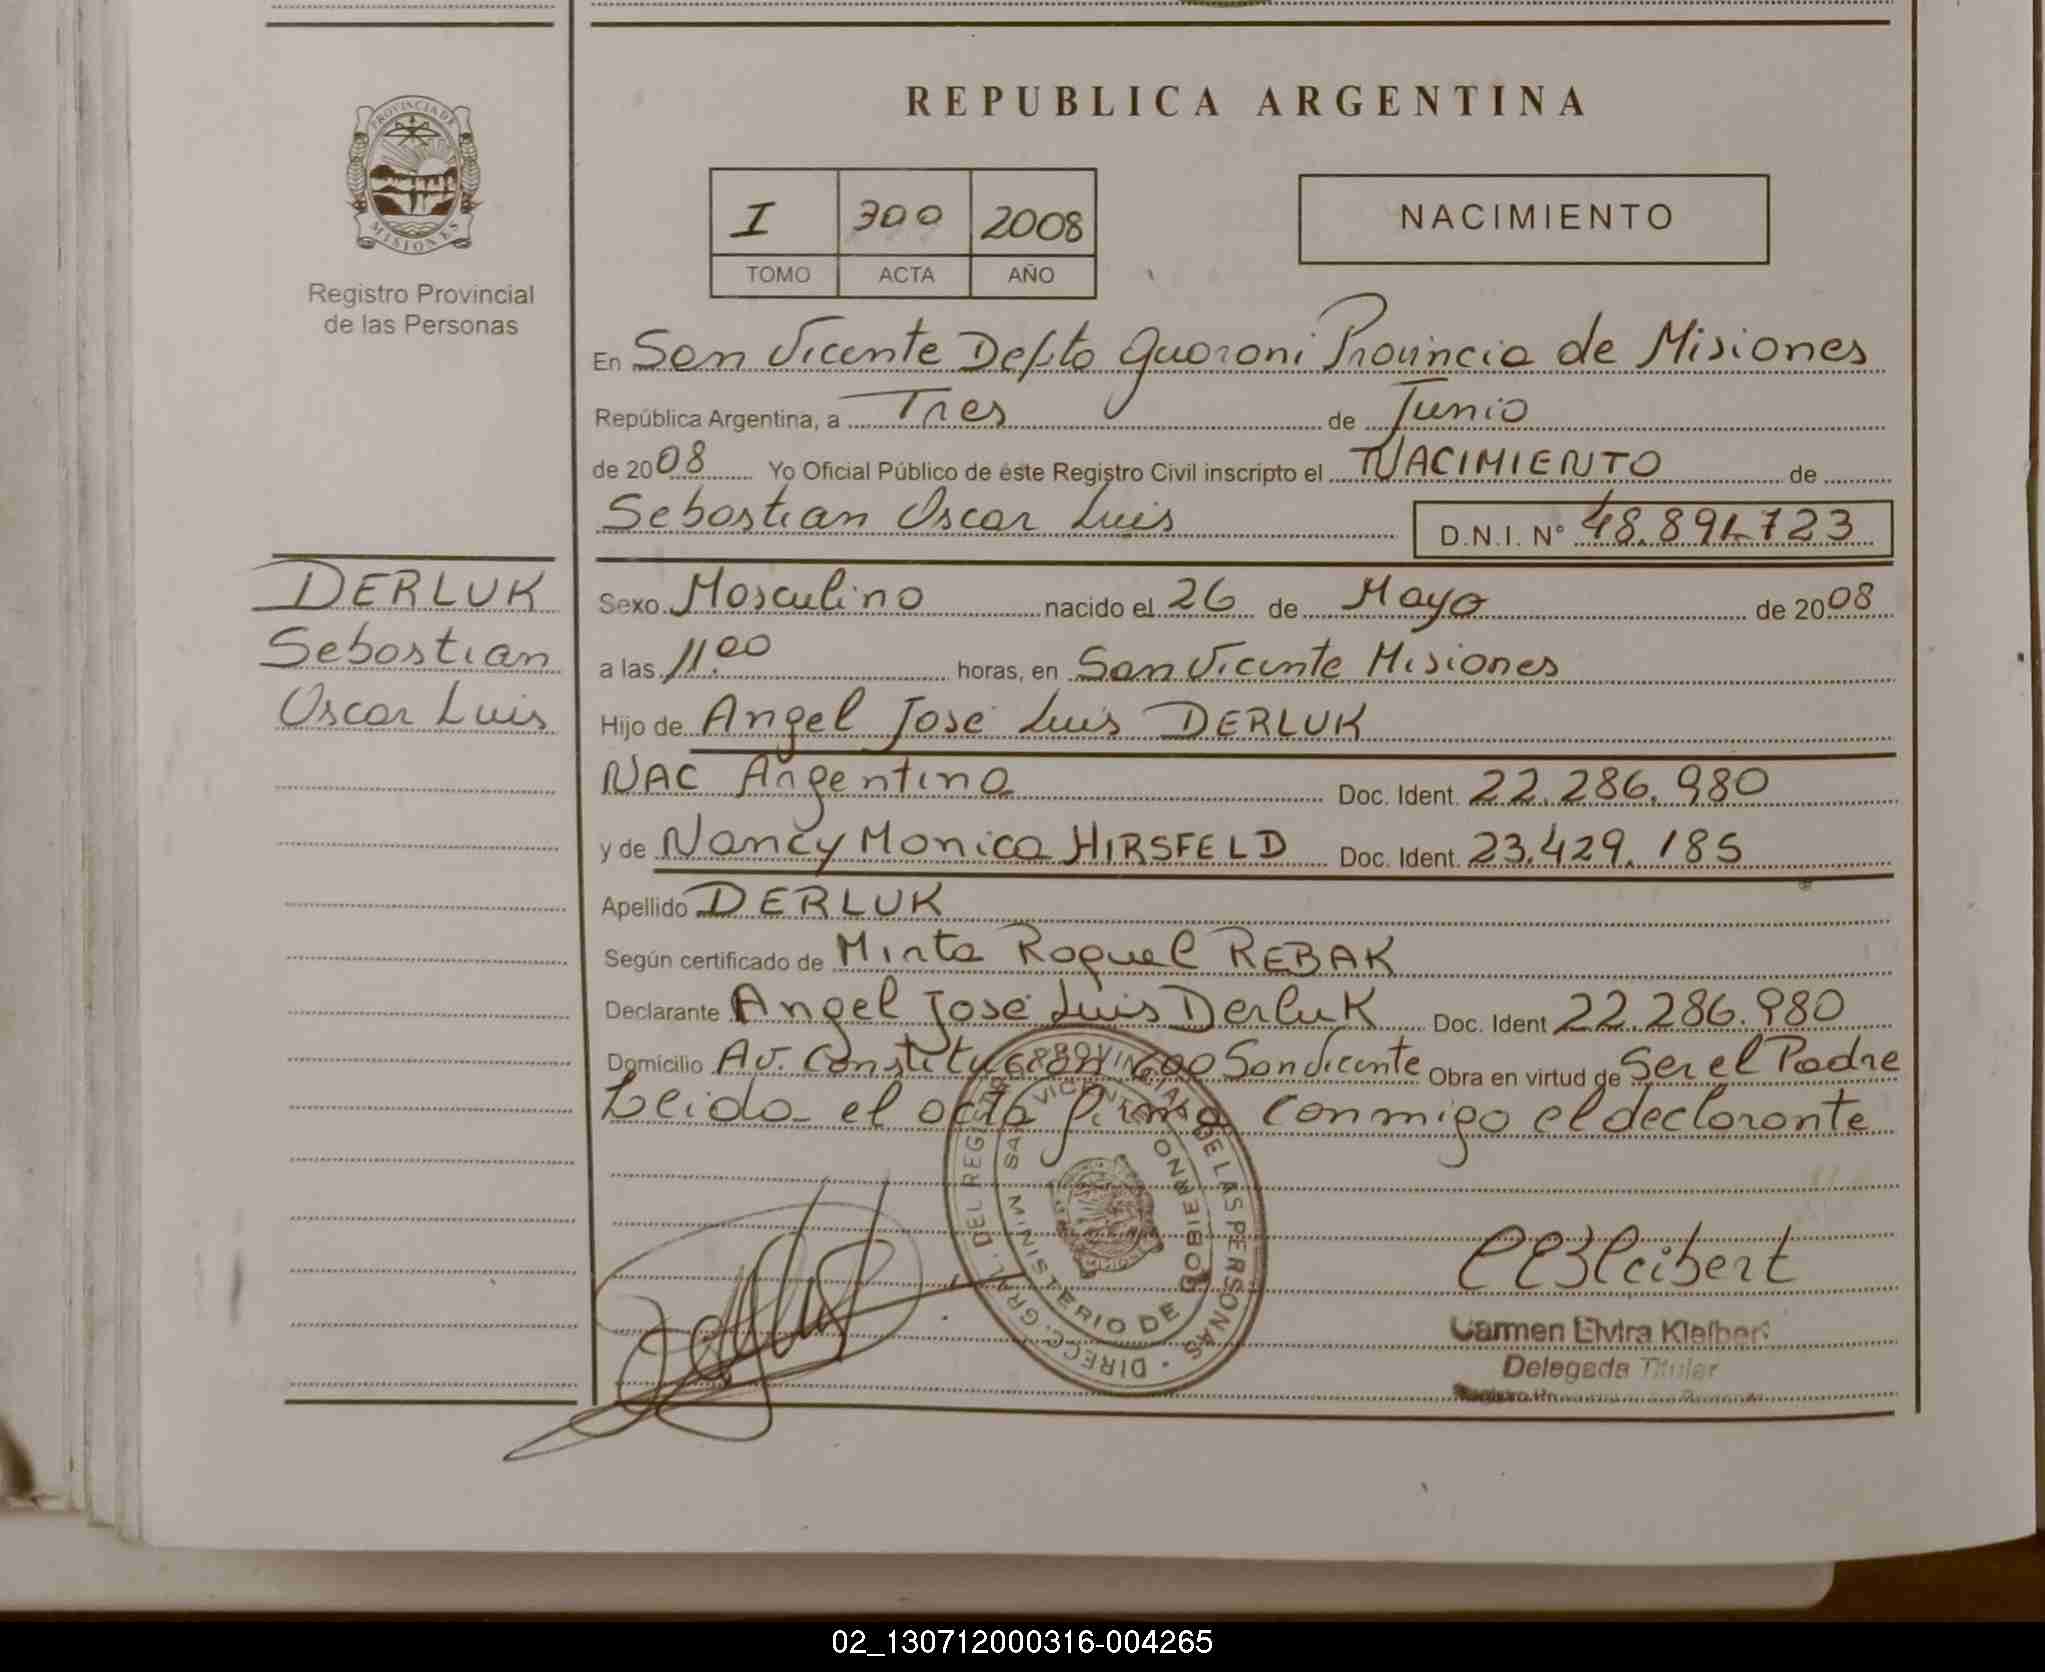 REPUBLICA ARGENTINA
PROVINCIA DE
MISIONES
Registro Provincial
de las Personas
I 300 2008
TOMO ACTA AÑO
NACIMIENTO
En San Vicente Depto Guarani Provincia de Misiones
República Argentina, a Tres de Junio
de 2008 Yo Oficial Público de éste Registro Civil inscripto el NACIMIENTO de
Sebastian Oscar Luis D.N.I. N° 48.894.723
DERLUK
Sebastian
Oscar Luis
Sexo Masculino nacido el 26 de Mayo de 2008
a las 11.00 horas, en San Vicente Misiones
Hijo de Angel José Luis DERLUK
NAC Argentina Doc. Ident. 22.286.980
y de Nancy Monica HIRSFELD Doc. Ident. 23.429.185
Apellido DERLUK
Según certificado de Mirta Raquel REBAK
Declarante Angel José Luis Derluk Doc. Ident 22.286.980
Domicilio Av. Constitucion 600 San Vicente Obra en virtud de Ser el Padre
Leida el acta firma conmigo el declarante
DIRECC. GRAL. DEL REGISTRO PROVINCIAL DE LAS PERSONAS
SAN VICENTE
MINISTERIO DE GOBIERNO
CEKleibert
Carmen Elvira Kleibert
Delegada Titular
02_130712000316-004265